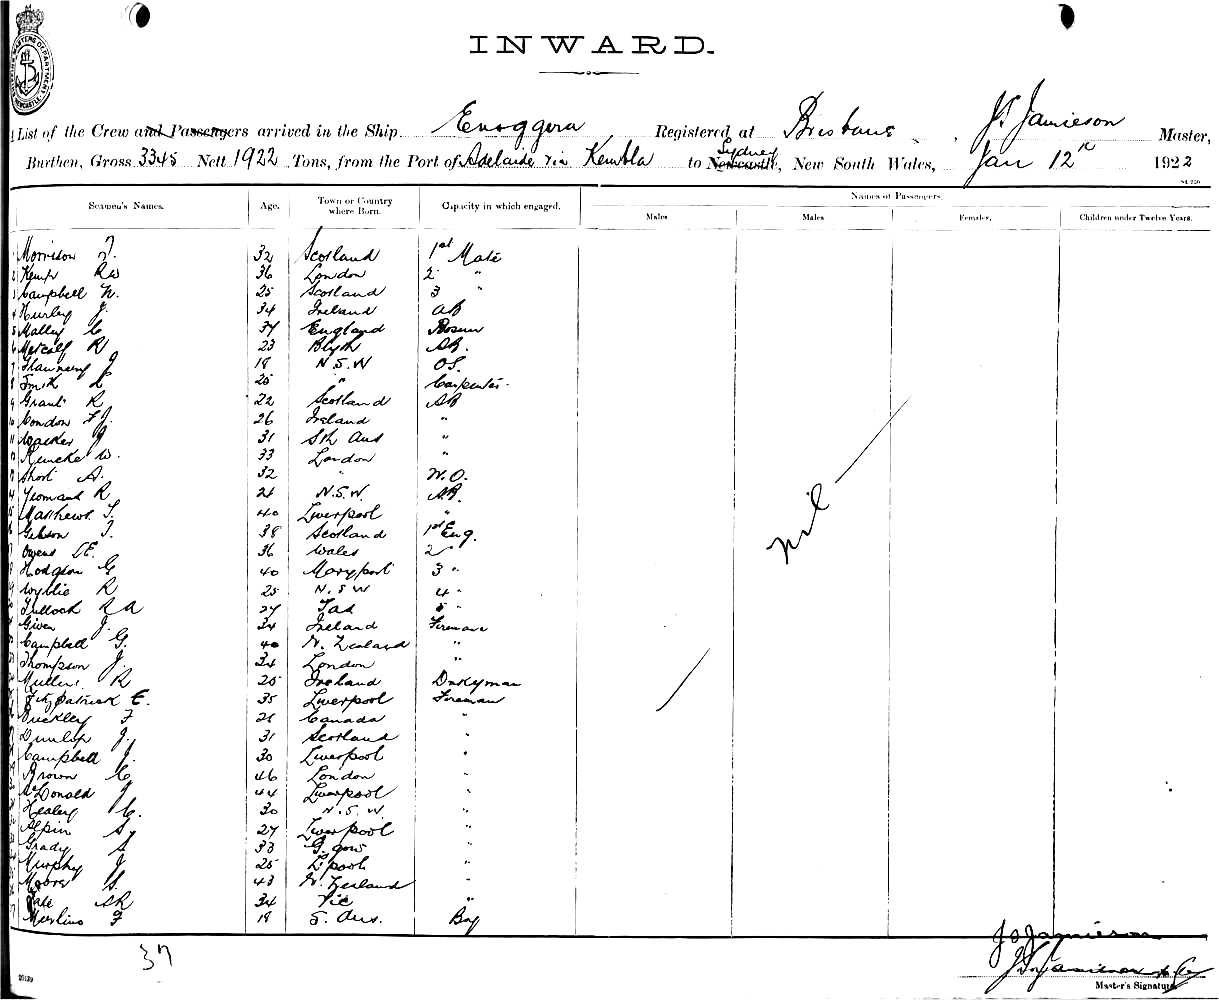 INWARD.
List of the Crew and Passengers arrived in the Ship Enoggera Registered at Brisbane, J. Jamieson Master,
Burthen, Gross 3345 Nett 1922 Tons, from the Port of Adelaide via Kembla to Newcastle, Sydney New South Wales, Jan 12th 1922
Seamen's Names. Age. Town or Country where Born. Capacity in which engaged. Names of Passengers.
Males Males Females. Children under Twelve Years.
1 Morrison J. 32 Scotland 1st Mate
2 Kemp RW 36 London 2 "
3 Campbell N. 25 Scotland 3 "
4 Hurley J. 34 Ireland AB
5 Malley C 34 England Bosun
6 Metcalf R 23 Blyth AB.
7 J 18 N.S.W OS.
8 Smith 25 " Carpenter
9 Grant R 22 Scotland AB
10 Condon FJ. 26 Ireland "
11 J 31 Sth Aus "
W. 33 London "
Short A. 32 " W.O.
Yeomans R 21 N.S.W. AB.
Matthews T. 40 Liverpool "
Gibson J. 38 Scotland 1st Eng.
Owens E. 36 Wales 2 "
Hodgson G 40 Maryport 3 "
Wyllie R 25 N.S.W 4 "
Tullock R A 27 Tas 5 "
Given J. 34 Ireland Fireman
Campbell G. 40 N. Zealand "
Thompson J. 34 London "
Mullins R 25 Ireland Dnkyman
Fitzpatrick E. 35 Liverpool Fireman
Buckley F 21 Canada "
Dunlop J. 31 Scotland "
Campbell J. 30 Liverpool "
Brown C 46 London "
McDonald J 44 Liverpool "
Healey C. 30 N.S.W. "
Alpin S. 27 Liverpool "
Grady S 33 G.gow "
Murphy J 25 L'pool "
Moore S. 43 N. Zealand "
Tate AR 34 Vic "
F 18 S. Aus. Boy
nil
37
J Jamieson
Master's Signature